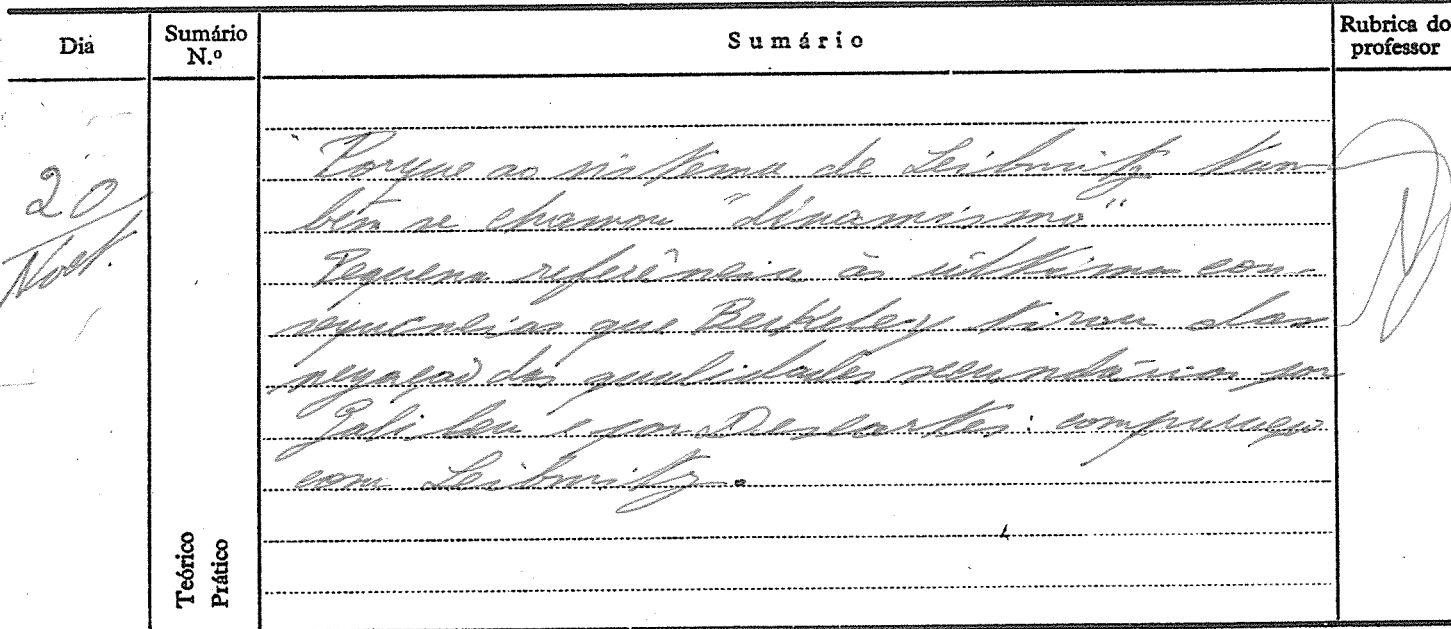 Dia
Sumário
N.º
Sumário
Rubrica do
professor
20
Nov.
Porque ao sistema de Leibnitz tam
bém se chamou "dinamismo"
Pequena referência às última con-
sequências que Berkeley tirou das
negação das qualidades secundárias por
Galileu e por Descartes: comparação
com Leibnitz.
Teórico
Prático